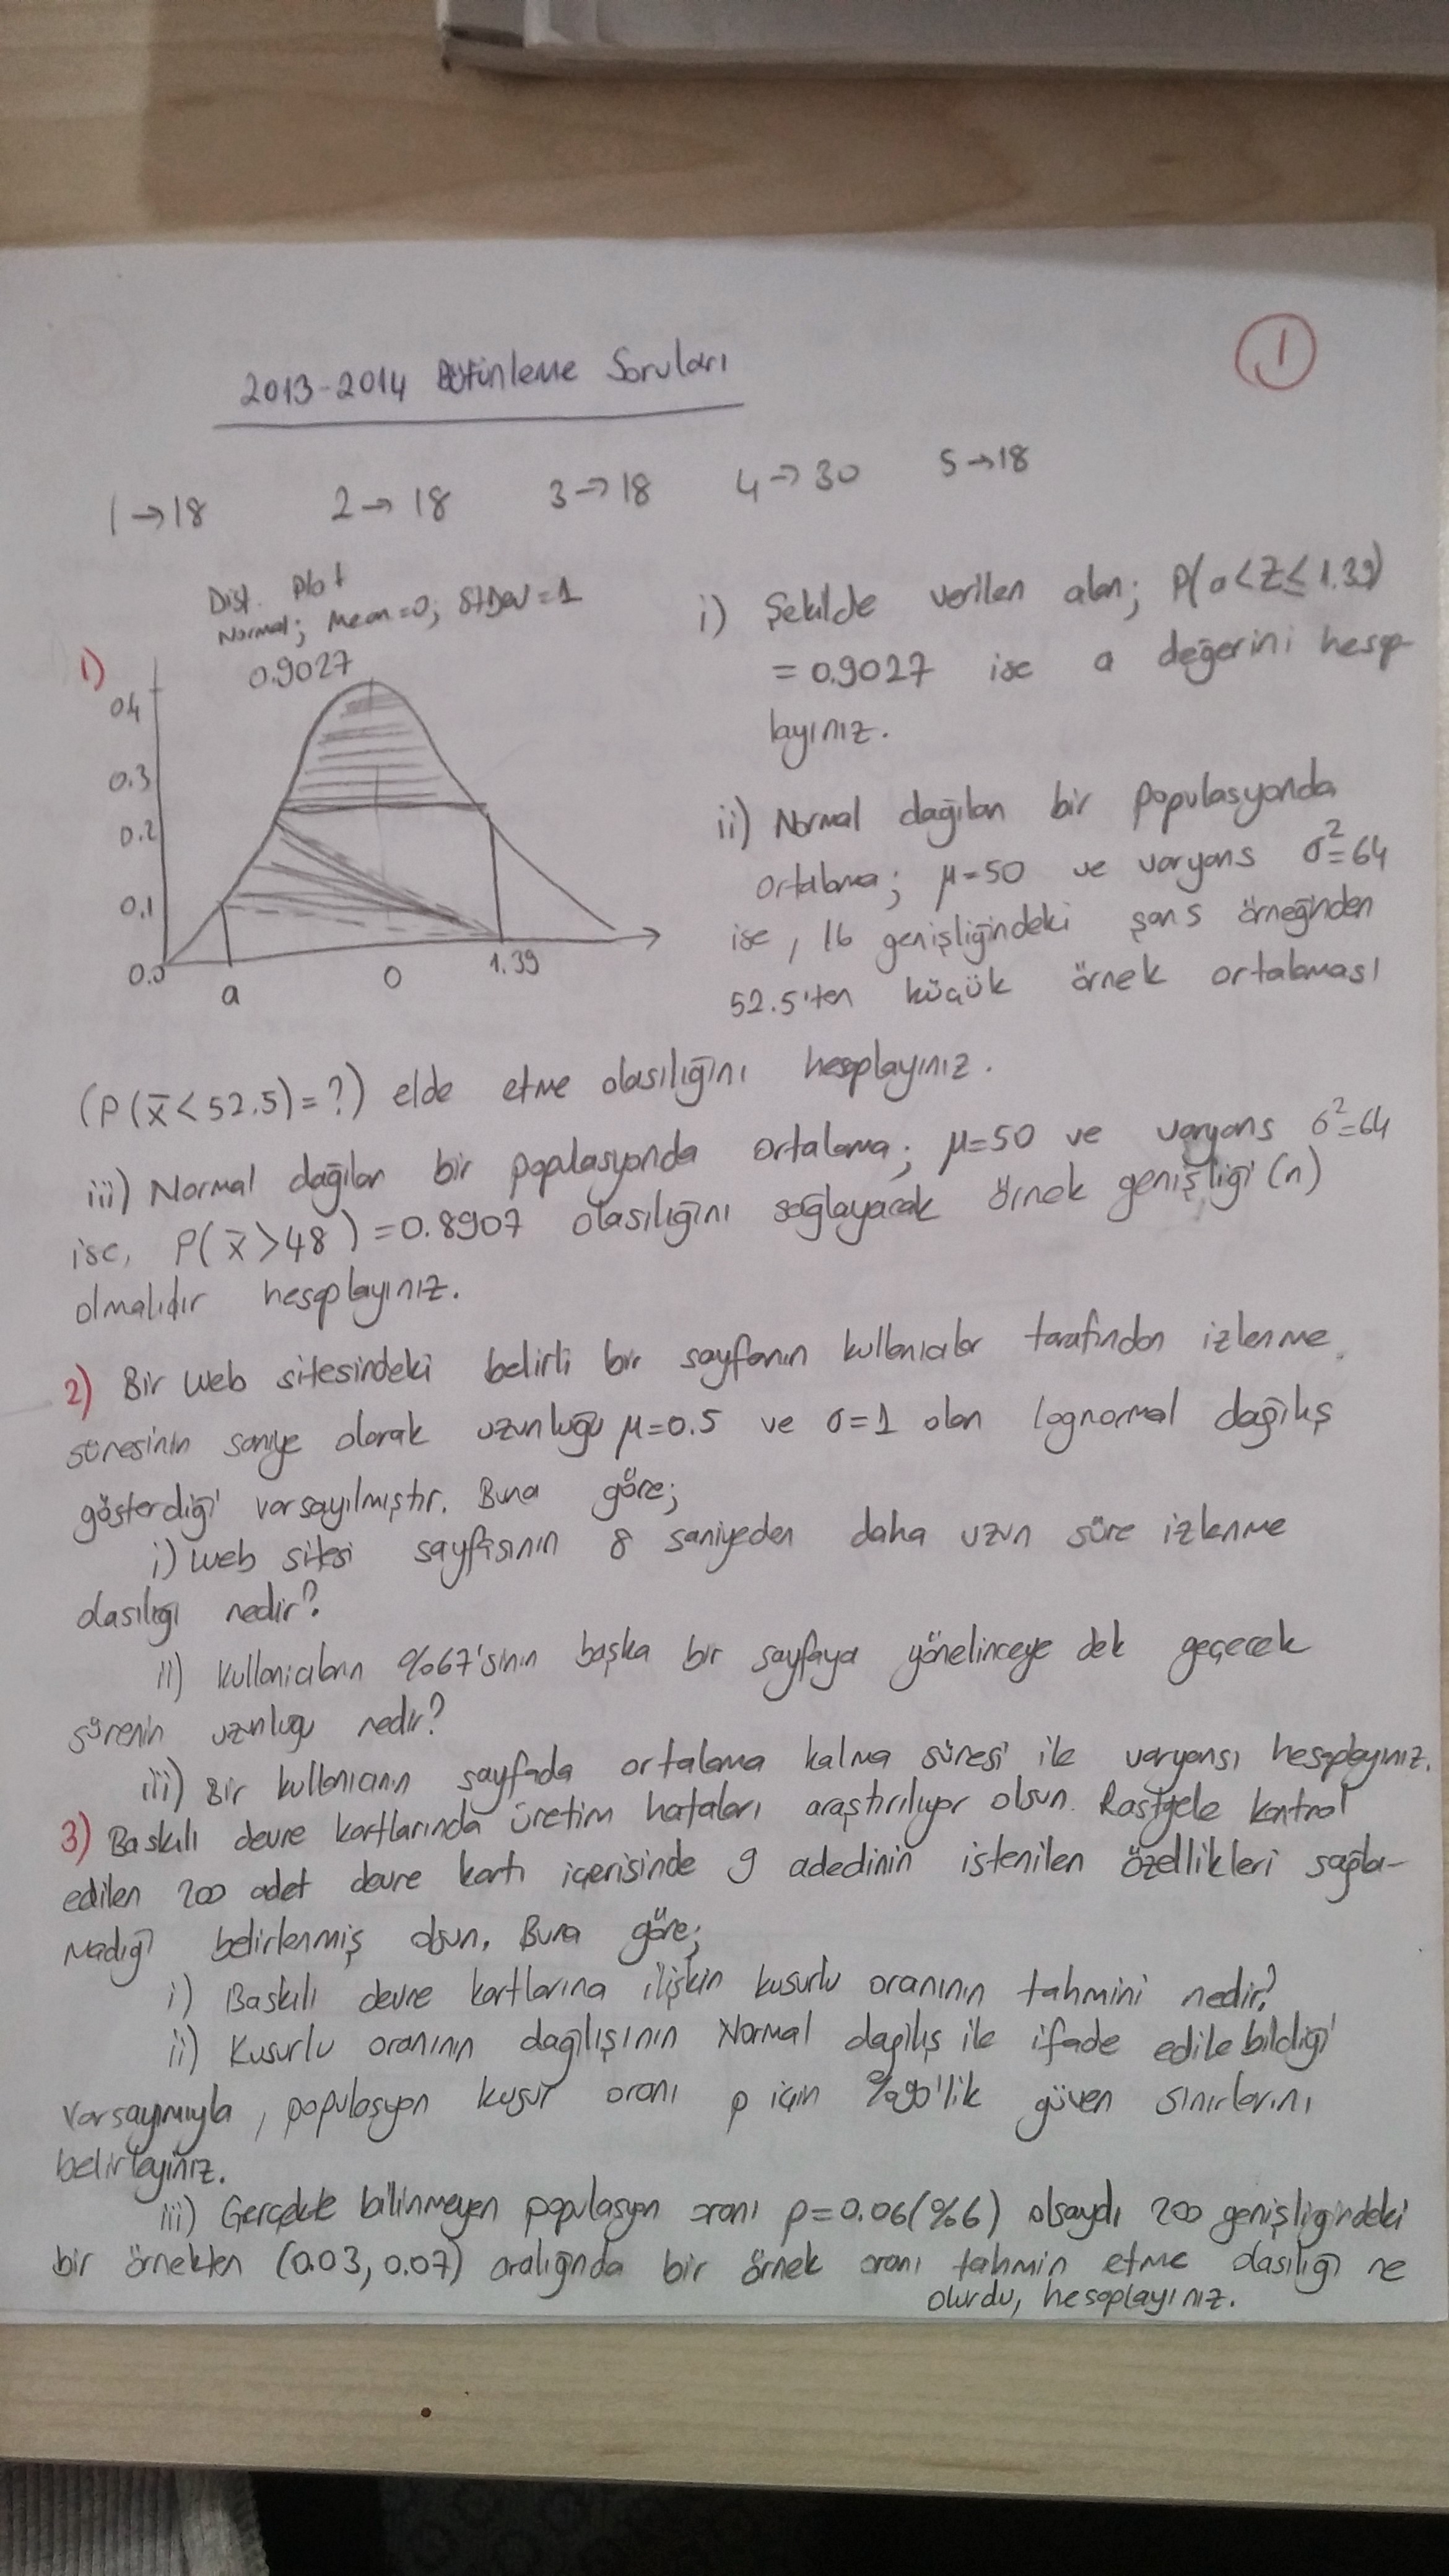 1
2013-2014 Bütünleme Soruları
1→18 2→18 3→18 4→30 5→18
Dist. Plot
Normal; Mean=0; StDev=1
0.9027
1)
0.4
0.3
0.2
0.1
0.0
a 0 1.39
i) Şekilde verilen alan; P(a<Z≤1.39)
=0.9027 ise a değerini hesap-
layınız.
ii) Normal dağılan bir populasyonda
ortalama; μ=50 ve varyans σ²=64
ise, 16 genişliğindeki şans örneğinden
52.5'ten küçük örnek ortalaması
(P(x̄<52.5)=?) elde etme olasılığını hesaplayınız.
iii) Normal dağılan bir populasyonda ortalama; μ=50 ve varyans σ²=64
ise, P(x̄>48)=0.8907 olasılığını sağlayacak örnek genişliği (n)
olmalıdır hesaplayınız.
2) Bir web sitesindeki belirli bir sayfanın kullanıcılar tarafından izlenme
süresinin saniye olarak uzunluğu μ=0.5 ve σ=1 olan lognormal dağılış
gösterdiği varsayılmıştır. Buna göre;
i) web sitesi sayfasının 8 saniyeden daha uzun süre izlenme
olasılığı nedir?
ii) Kullanıcıların %67'sinin başka bir sayfaya yönelinceye dek geçecek
sürenin uzunlugu nedir?
iii) Bir kullanıcının sayfada ortalama kalma süresi ile varyansı hesaplayınız.
3) Baskılı devre kartlarında üretim hataları araştırılıyor olsun. Rastgele kontrol
edilen 200 adet devre kartı içerisinde 9 adedinin istenilen özellikleri sağla-
madığı belirlenmiş olsun. Buna göre;
i) Baskılı devre kartlarına ilişkin kusurlu oranının tahmini nedir?
ii) Kusurlu oranının dağılışının Normal dağılış ile ifade edilebildiği
varsayımıyla, populasyon kusur oranı p için %90'lik güven sınırlarını
belirleyiniz.
iii) Gerçekte bilinmeyen populasyon oranı p=0.06(%6) olsaydı 200 genişligindeki
bir örnekten (0.03, 0.07) aralığında bir örnek oranı tahmin etme olasılığı ne
olurdu, hesaplayınız.